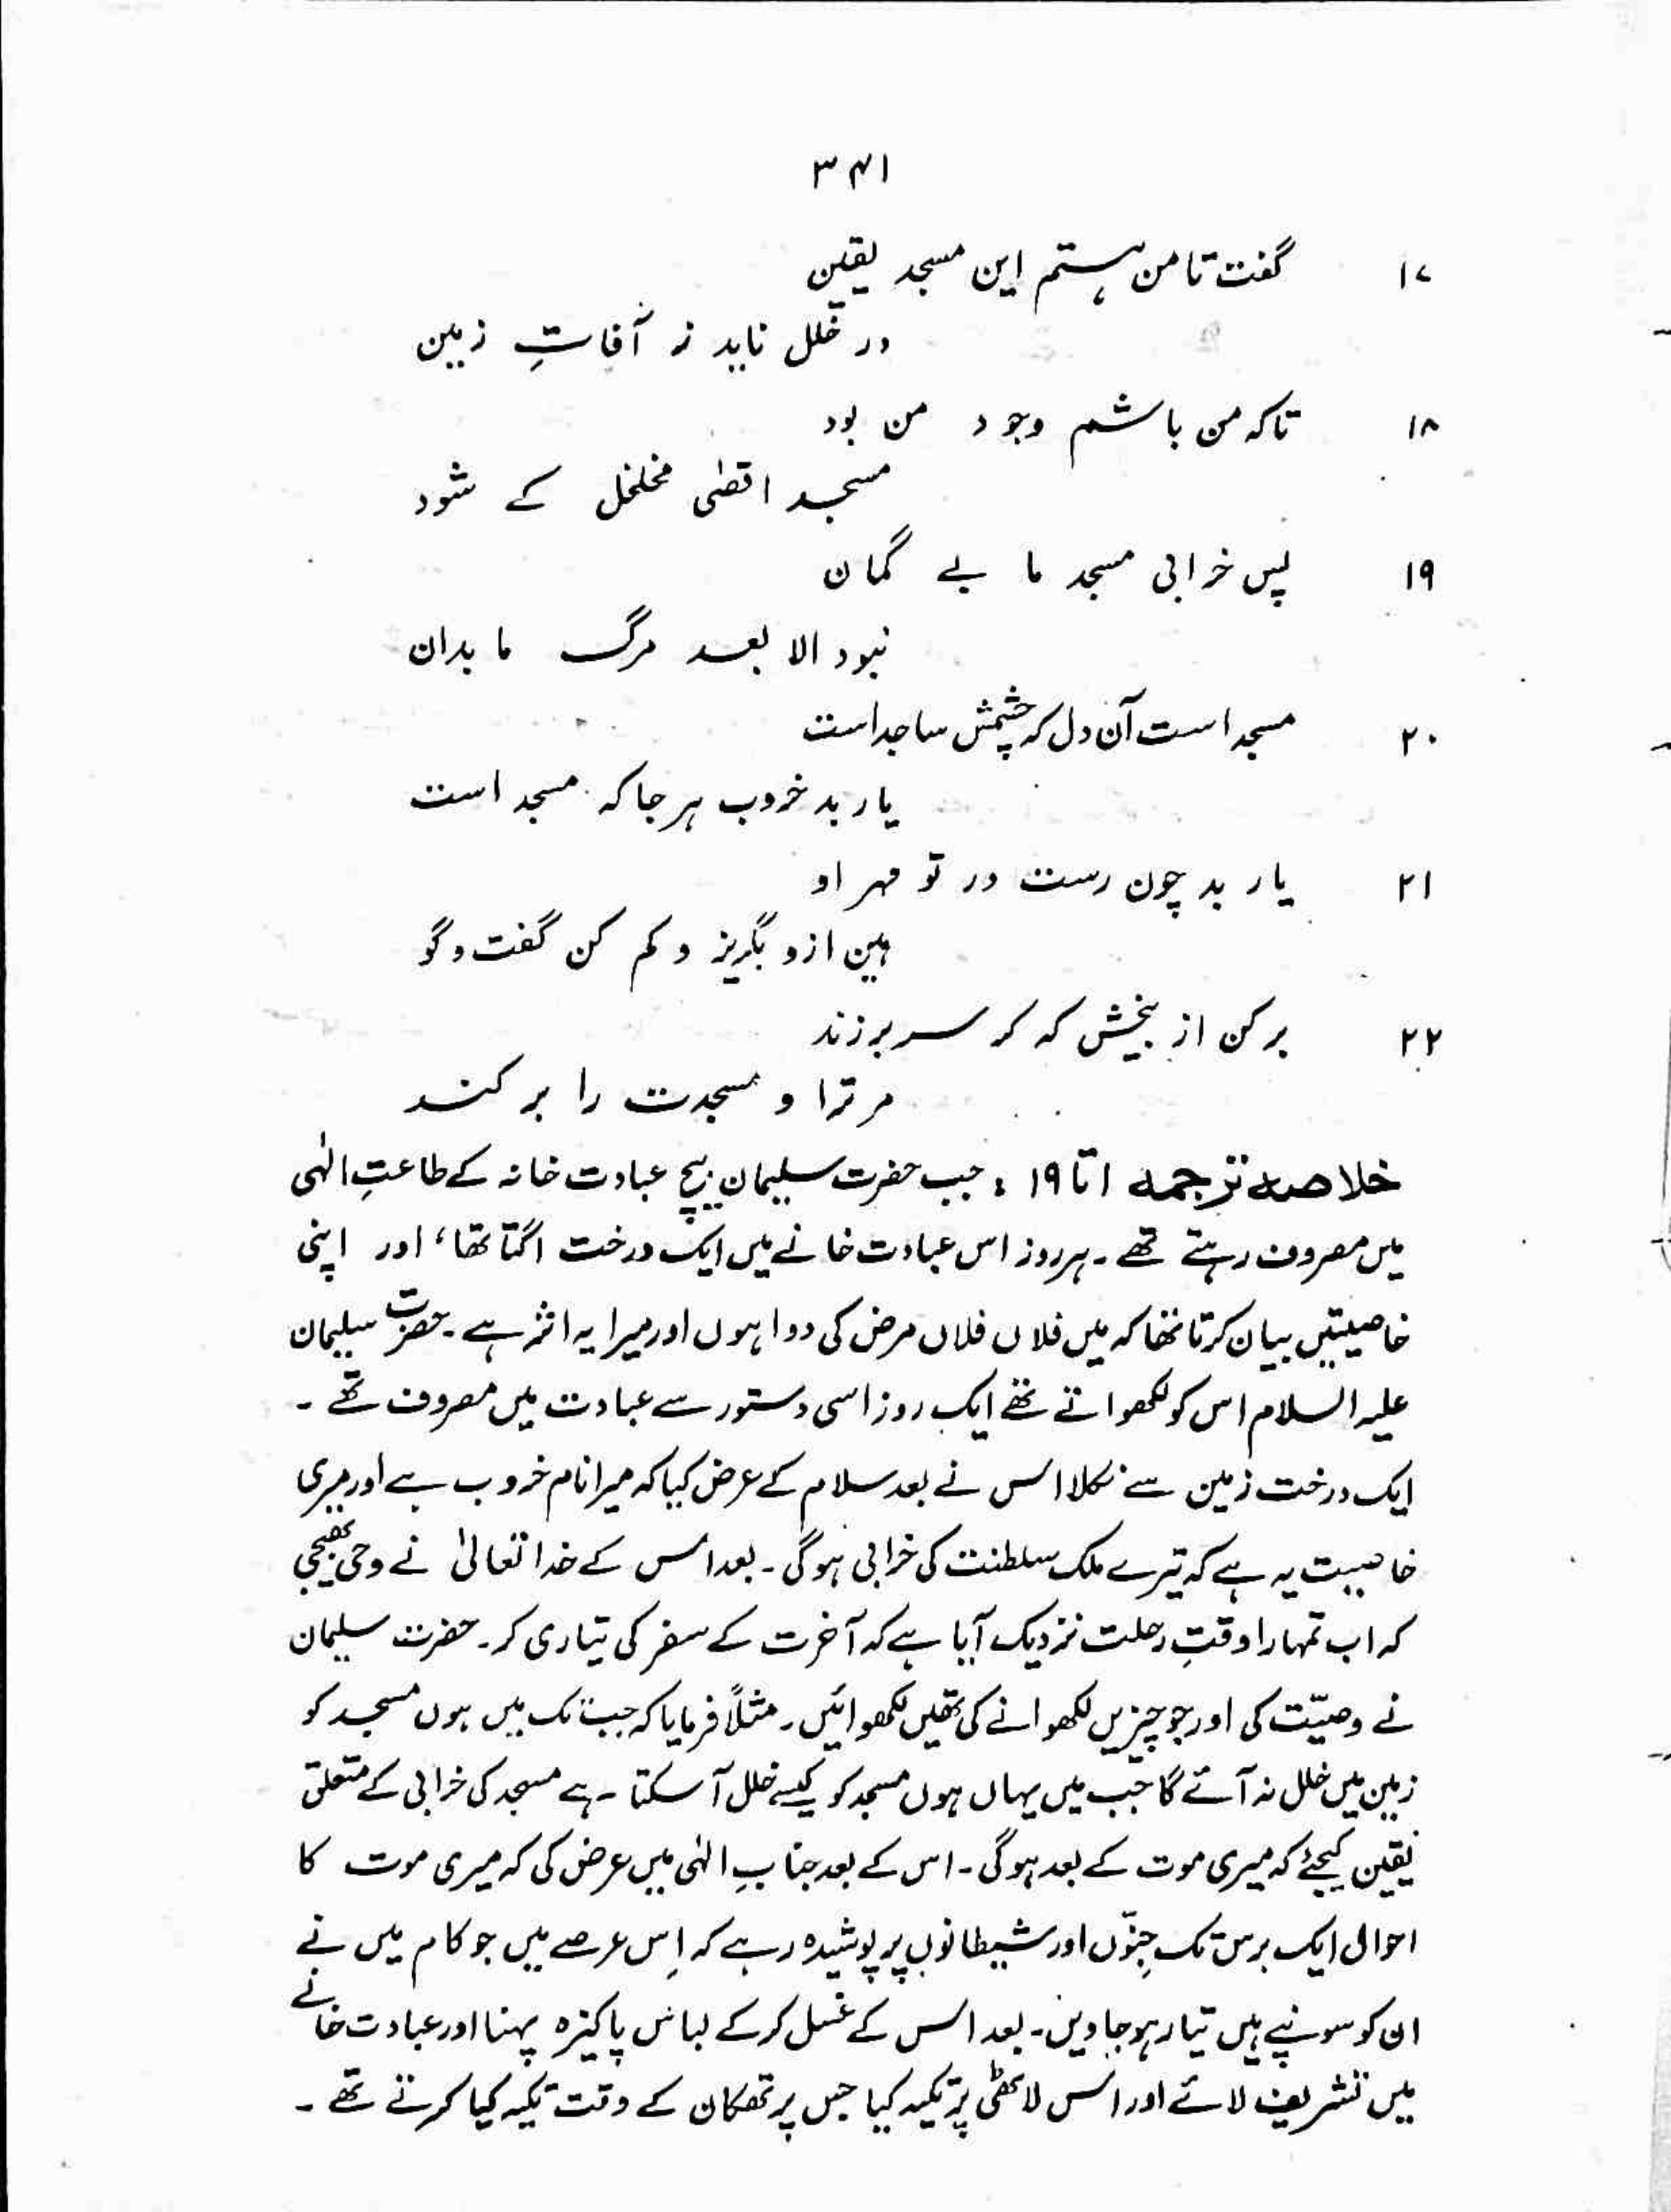 ۳۴۱
۱۷ گفت تا من ہستم این مسجد یقین
در خلل ناید ز آفاتِ زمین
۱۸ تا کہ من باشم وجود من بود
مسجد اقصٰی مخلخل کے شود
۱۹ پس خرابی مسجد ما بے گمان
نبود الا بعد مرگ ما بدان
۲۰ مسجد است آن دل کہ چشمش ساجد است
یار بد خروب ہر جا کہ مسجد است
۲۱ یار بد چون رست در تو مہر او
ہین ازو بگریز و کم کن گفت و گو
۲۲ برکن از بیخش کہ کر سر برزند
مر ترا و مسجدت را بر کند
خلاصہ ترجمہ ۱ تا ۱۹ : جب حضرت سلیمان بیچ عبادت خانہ کے طاعتِ الٰہی
میں مصروف رہتے تھے ۔ ہر روز اس عبادت خانے میں ایک درخت اگتا تھا، اور اپنی
خاصیتیں بیان کرتا تھا کہ میں فلاں فلاں مرض کی دوا ہوں اور میرا یہ اثر ہے ۔ حضرت سلیمان
علیہ السلام اس کو لکھواتے تھے ایک روز اسی دستور سے عبادت میں مصروف تھے ۔
ایک درخت زمین سے نکلا اس نے بعد سلام کے عرض کیا کہ میرا نام خروب ہے اور میری
خاصیت یہ ہے کہ تیرے ملک سلطنت کی خرابی ہوگی ۔ بعد اس کے خدا تعالیٰ نے وحی بھیجی
کہ اب تمہارا وقتِ رحلت نزدیک آیا ہے کہ آخرت کے سفر کی تیاری کر ۔ حضرت سلیمان
نے وصیّت کی اور جو چیزیں لکھوانے کی تھیں لکھوائیں ۔ مثلاً فرمایا کہ جب تک میں ہوں مسجد کو
زمین میں خلل نہ آئے گا جب میں یہاں ہوں مسجد کو کیسے خلل آ سکتا ۔ ہے مسجد کی خرابی کے متعلق
یقین کیجئے کہ میری موت کے بعد ہوگی ۔ اس کے بعد جنابِ الٰہی میں عرض کی کہ میری موت کا
احوال ایک برس تک جِنّوں اور شیطانوں پر پوشیدہ رہے کہ اِس عرصے میں جو کام میں نے
ان کو سونپے ہیں تیار ہو جاویں ۔ بعد اس کے غسل کر کے لباس پاکیزہ پہنا اور عبادت خانے
میں تشریف لائے اور اس لاٹھی پر تکیہ کیا جس پر تھکان کے وقت تکیہ کیا کرتے تھے ۔